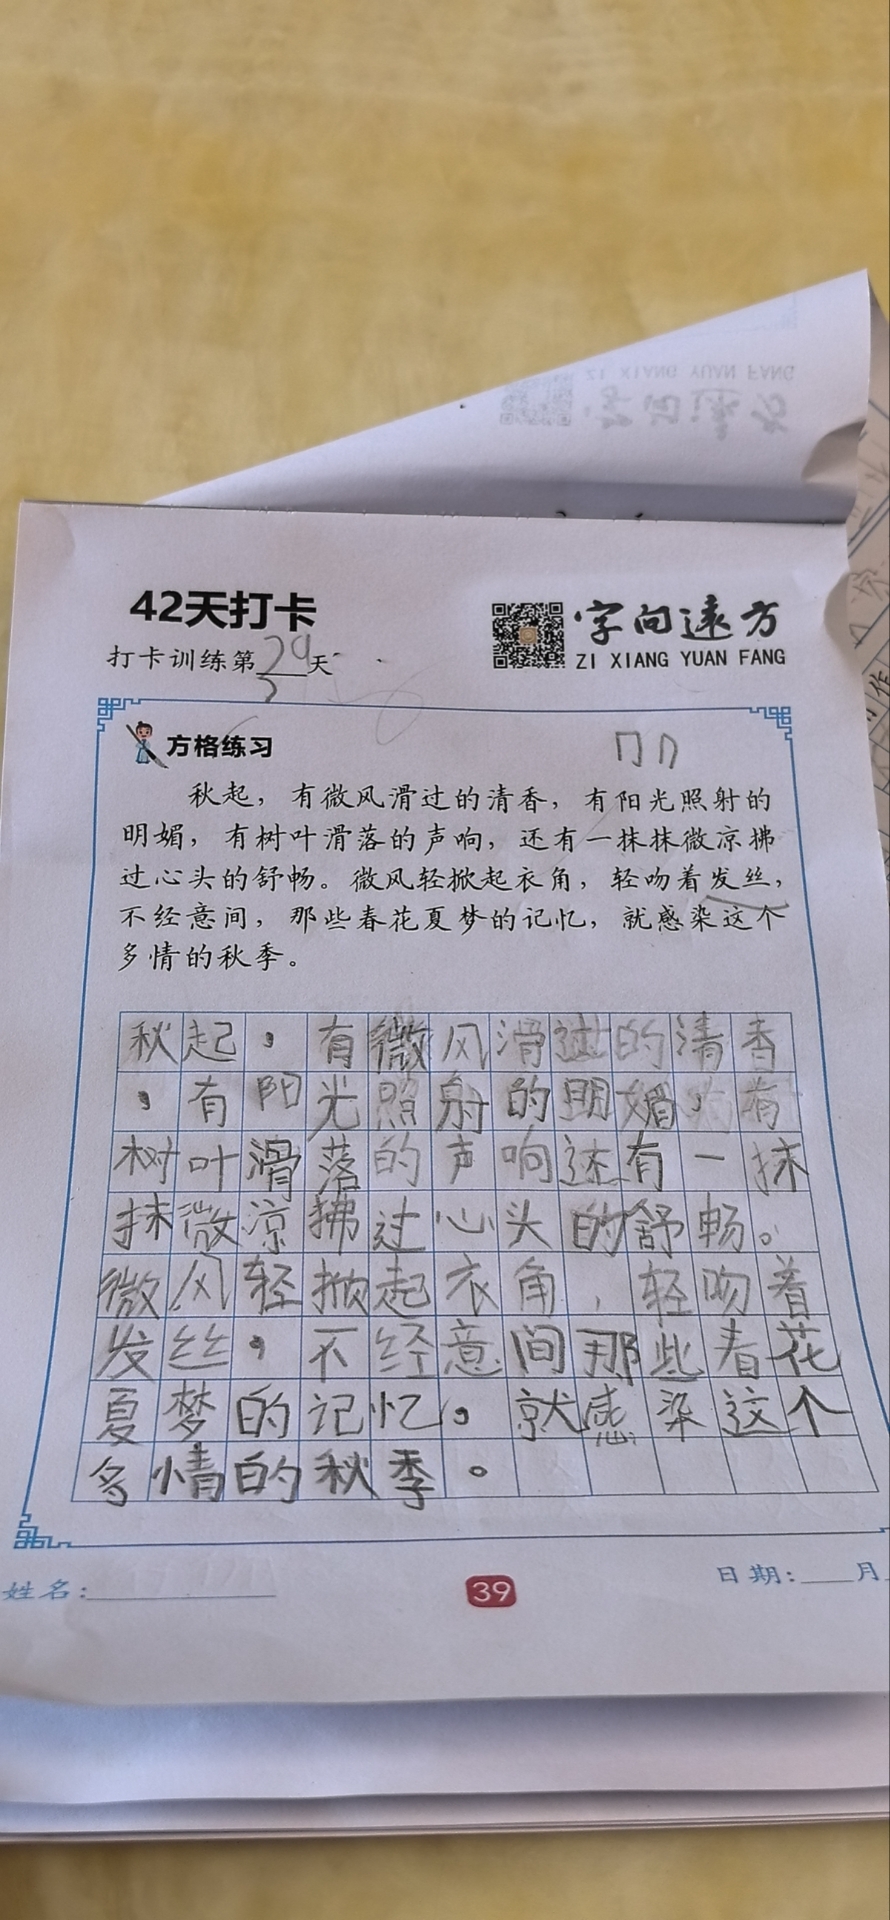 ZI XIANG YUAN FANG
字向远方
42天打卡
字向遠方
打卡训练第29天
ZI XIANG YUAN FANG
方格练习
秋起，有微风滑过的清香，有阳光照射的
明媚，有树叶滑落的声响，还有一抹抹微凉拂
过心头的舒畅。微风轻掀起衣角，轻吻着发丝，
不经意间，那些春花夏梦的记忆，就感染这个
多情的秋季。
秋起，有微风滑过的清香
，有阳光照射的明媚，有
树叶滑落的声响还有一抹
抹微凉拂过心头的舒畅。
微风轻掀起衣角，轻吻着
发丝，不经意间那些春花
夏梦的记忆。就感染这个
多情的秋季。
姓名:
39
日期: 月